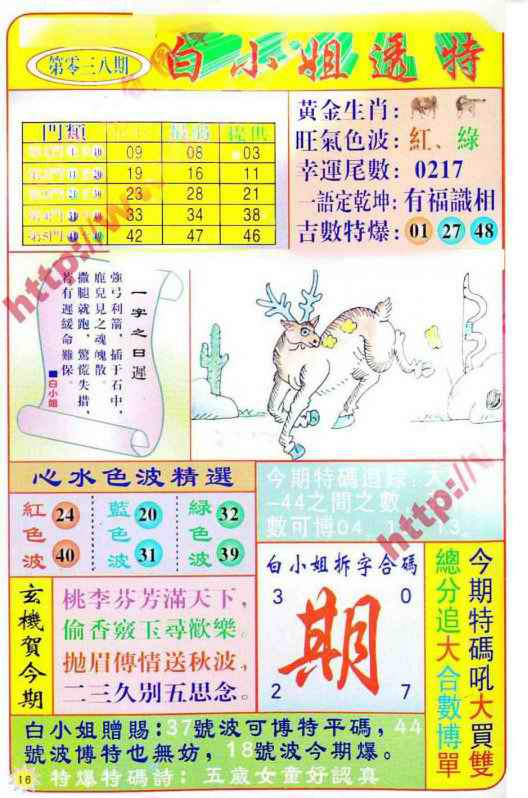 第零三八期
白小姐透特
門類
09 08 03
19 16 11
23 28 21
33 34 38
42 47 46
黃金生肖：
旺氣色波：紅、綠
幸運尾數：0217
一語定乾坤：有福識相
吉數特爆：01 27 48
一字之日遲
強弓利箭，插于石中，
鹿兒見之魂魄散。
撒腿就跑，驚慌失措，
若有遲緩命難保。
■白小姐
http://w
http://w
心水色波精選
紅色波 24 40
藍色波 20 31
綠色波 32 39
今期特碼追踪：大
-44之間之數
數可博04、1 13
玄機賀今期
桃李芬芳滿天下，
偷香竅玉尋歡樂。
拋眉傳情送秋波，
二三久別五思念。
白小姐拆字合碼
3 0
期
2 7
今期特碼吼大買雙
總分追大合數博單
白小姐贈賜：37號波可博特平碼，44
號波博特也無妨，18號波今期爆。
特爆特碼詩：五歲女童好認真
16